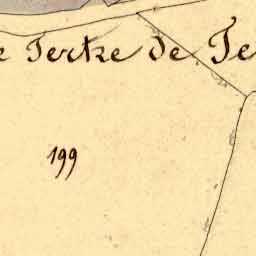 e Tertre de Te
199